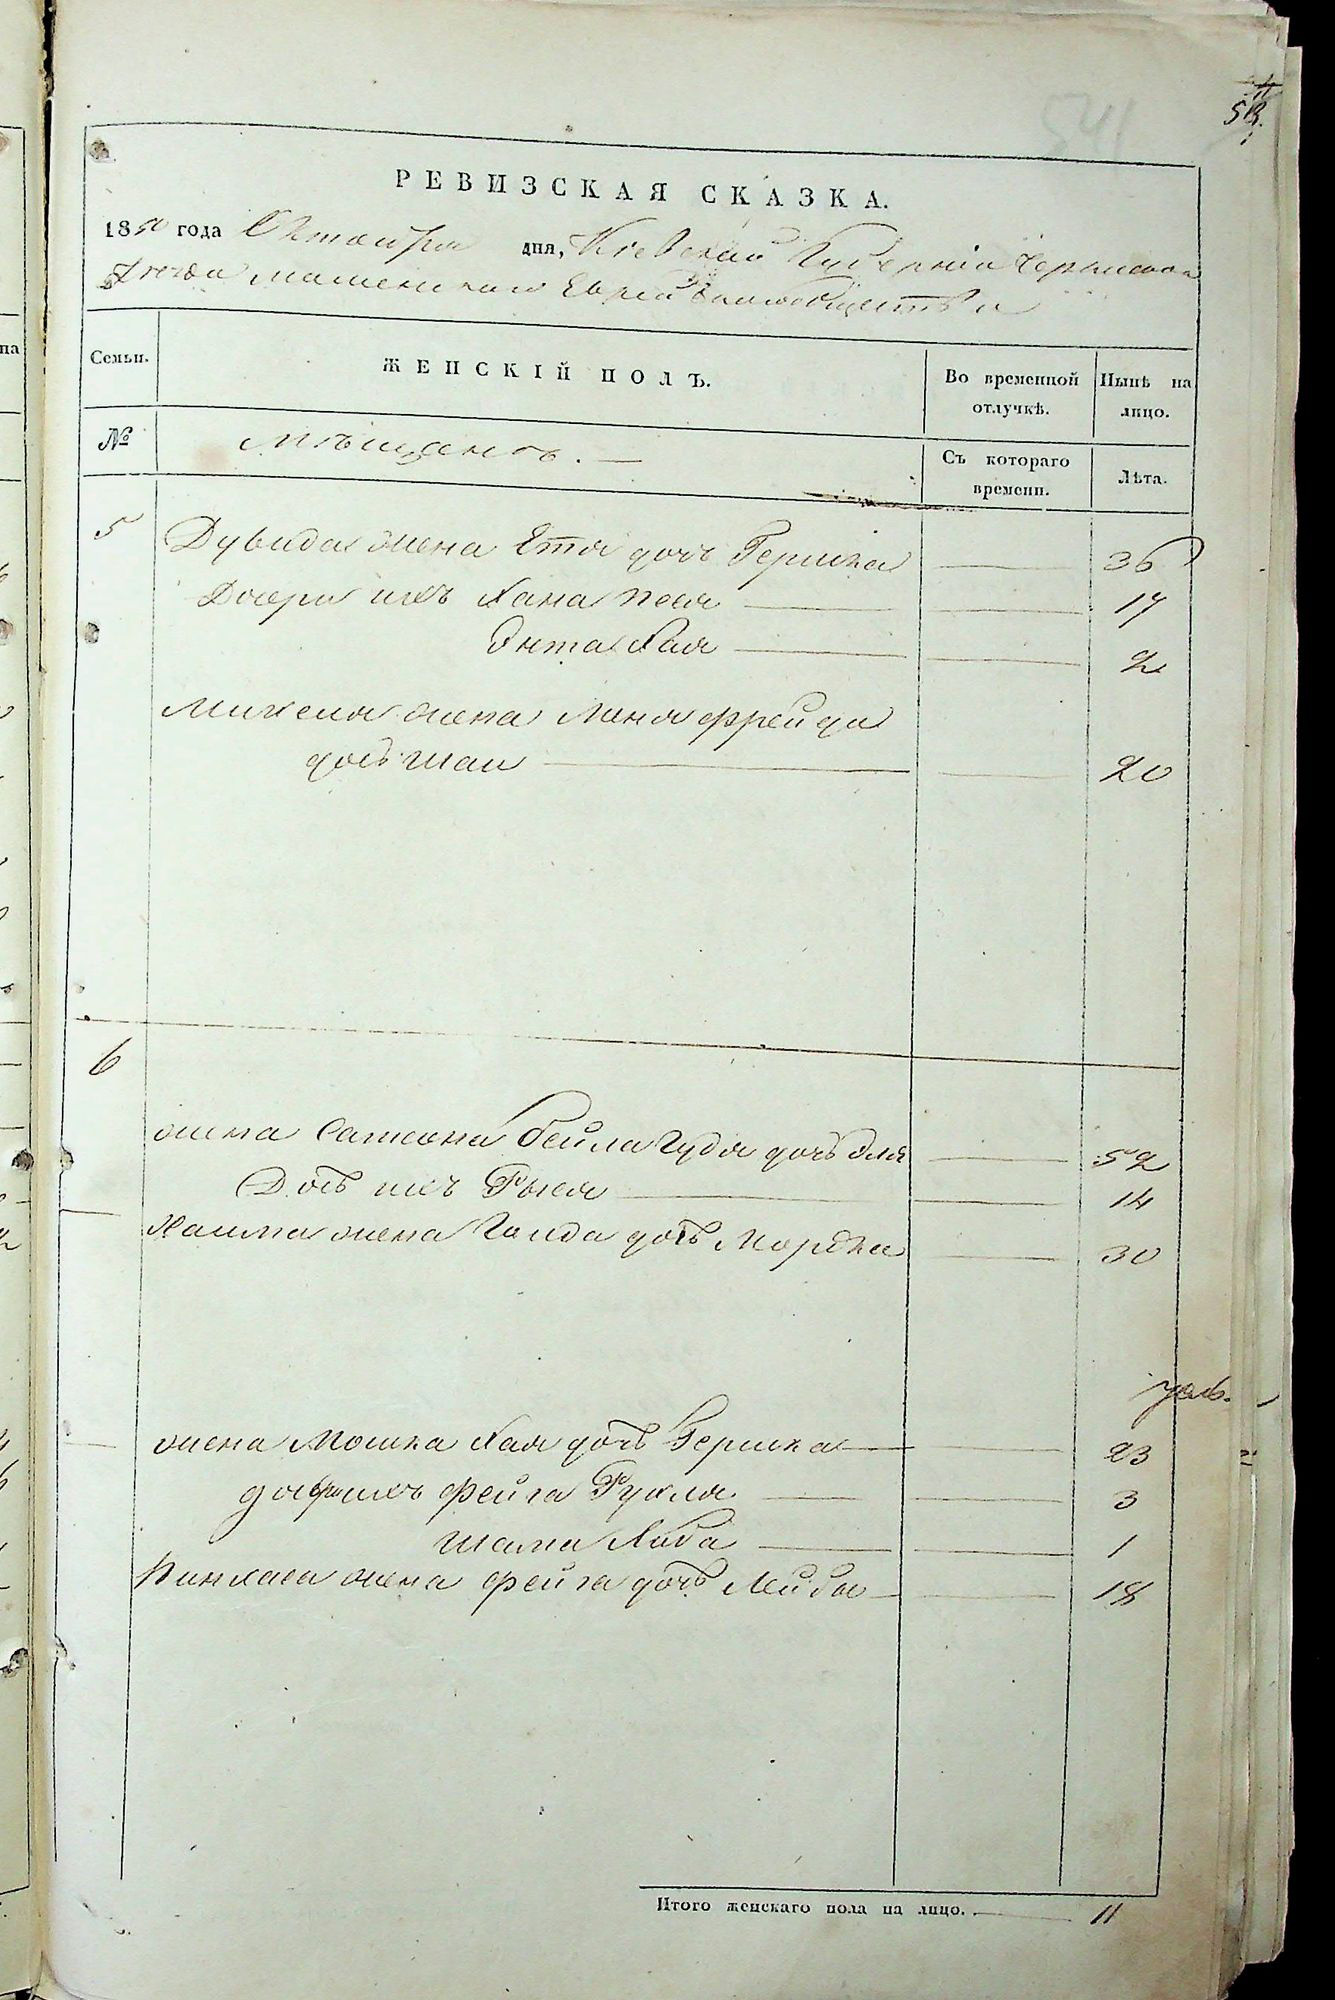 541
РЕВИЗСКАЯ СКАЗКА.
1850 года Октября дня, Кіевской Губерніи Черкаскаго
Уѣзда Еврейскаго общества
Семьи. ЖЕНСКІЙ ПОЛЪ. Во временной отлучкѣ. Нынѣ на лицо.
№ Мѣщанъ. Съ котораго времени. Лѣта.
5 Дувида жена Етя дочь Гершка 36
Дочери ихъ Хана Песя 17
Энта Хая 2
Михеля жена Леня Фрейда
дочь Шаи 20
6
жена Самсона Бейла Гудя дочь Эля 52
Дочь ихъ Рыся 14
Хаима жена Голда дочь Мордка 30
жена Мошка Хая дочь Гершка 23
дочери ихъ Фейга Рухля 3
Шама Либа 1
Пинхаса жена Фейга дочь Лейбы 18
Итого женскаго пола на лицо. 11